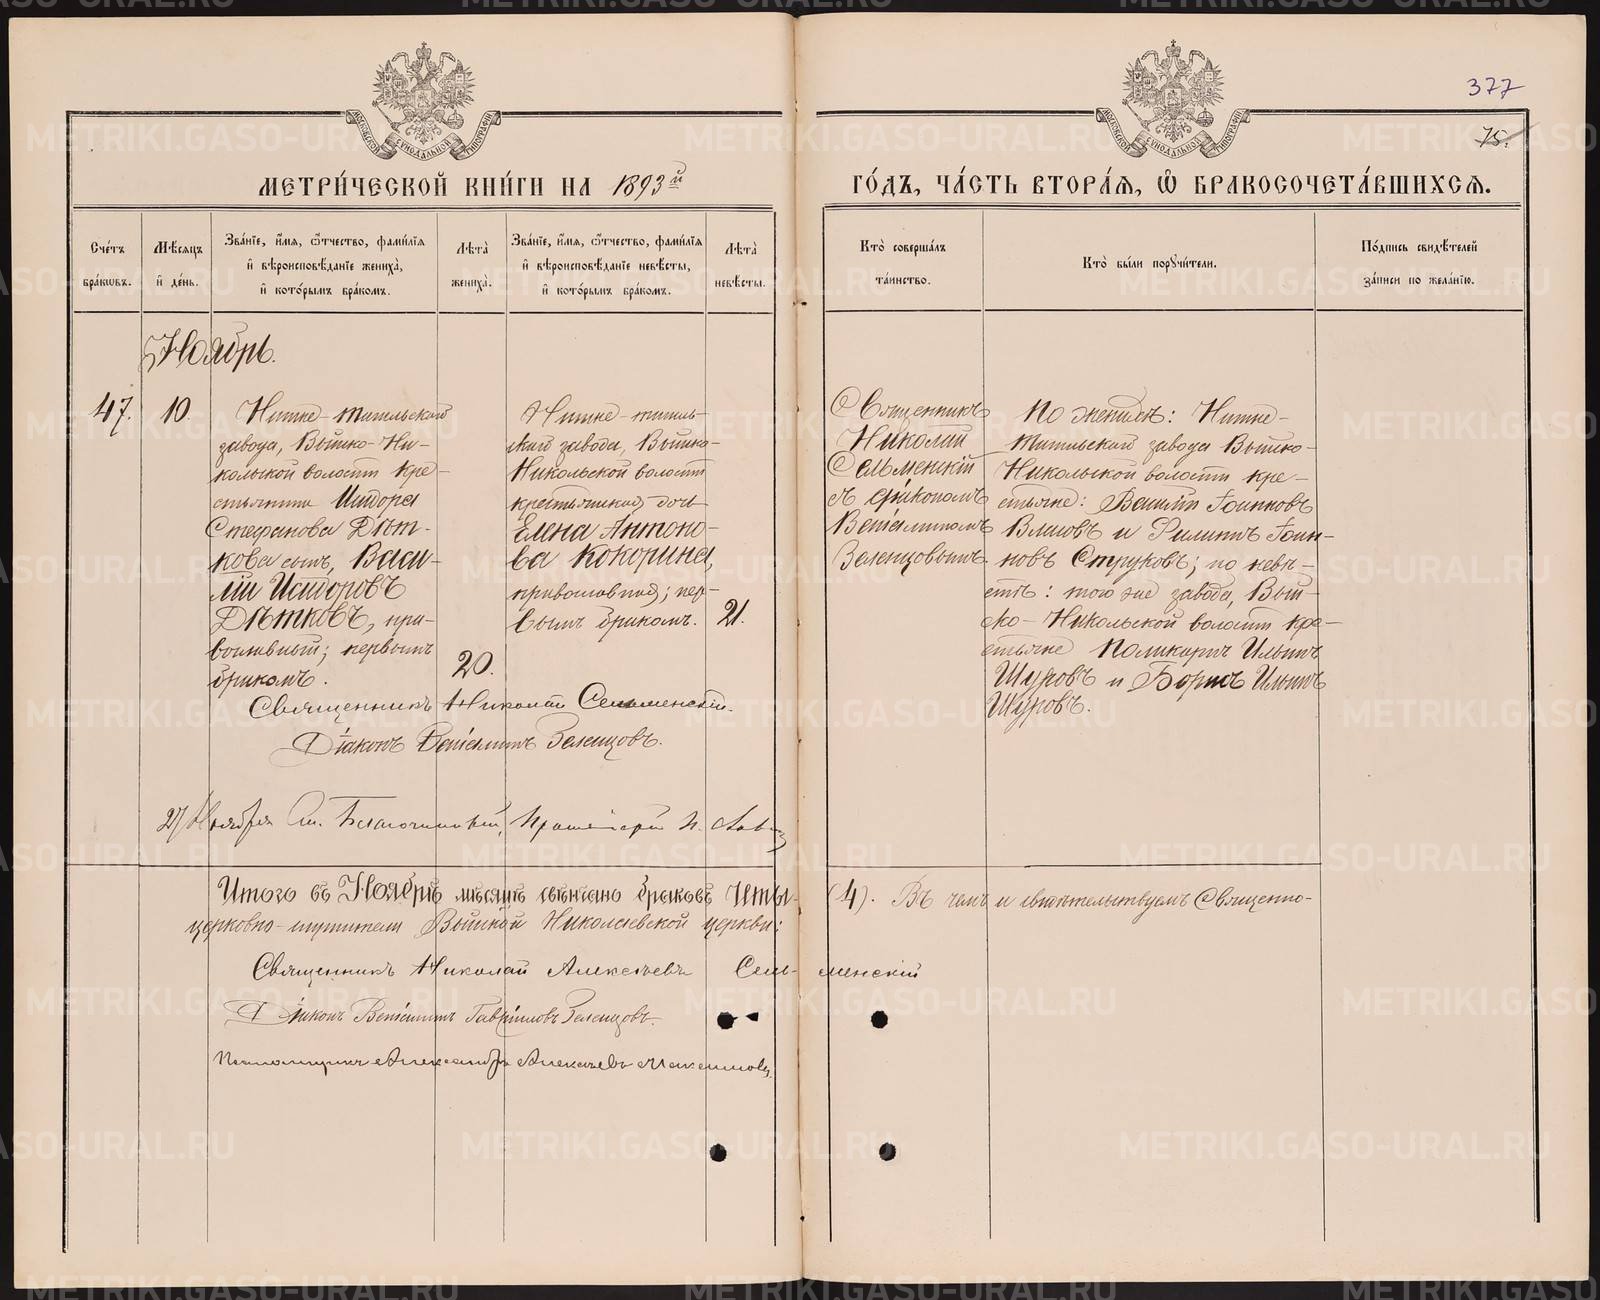 377
75.
МЕТРИ́ЧЕСКОЙ КНИ́ГИ НА 1893й
ГО́ДЪ, ЧА́СТЬ ВТОРА́Я, Ѽ БРАКОСОЧЕТА́ВШИХСЯ.
Сче́тъ бра́ковъ.
Мѣ́сяцъ и҆ де́нь.
Зва́нїе, и҆́мя, ѻ҆́тчество, фами́лїя и҆ вѣроисповѣ́данїе жениха̀, и҆ кото́рымъ бра́комъ.
Лѣта̀ жениха̀.
Зва́нїе, и҆́мя, ѻ҆́тчество, фами́лїя и҆ вѣроисповѣ́данїе невѣ́сты, и҆ кото́рымъ бра́комъ.
Лѣта̀ невѣ́сты.
Кто̀ соверша́лъ та́инство.
Кто̀ бы́ли порꙋчи́тели.
По́дпись свидѣ́телей за́писи по жела́нїю.
Ноябрь.
47.
10.
Нижне-тагильскаго
завода, Выйско-Ни-
кольской волости кре-
стьянина Исидора
Стефанова Дѣт-
кова сынъ, Васи-
лій Исидоровъ
Дѣтковъ, пра-
вославный; первымъ
бракомъ.
20.
Нижне-тагиль-
скаго завода, Выйско-
Никольской волости
крестьянская дочь
Елена Антоно-
ва Кокорина,
православная; пер-
вымъ бракомъ.
21.
Священникъ
Николай
Сельменскій
съ діакономъ
Веніаминомъ
Зеленцовымъ
По женихѣ: Нижне-
тагильскаго завода Выйско-
Никольской волости кре-
стьяне: Василій Іоанновъ
Власовъ и Филиппъ Іоан-
новъ Струковъ; по невѣ-
стѣ: того же завода, Вый-
ско-Никольской волости кре-
стьяне Поликарпъ Ильинъ
Щуровъ и Борисъ Ильинъ
Щуровъ.
Священникъ Николай Сельменскій.
Діаконъ Веніаминъ Зеленцовъ.
27 Ноября Благочинный, Протоіерей
Итого въ Ноябрѣ мѣсяцѣ свѣнчано браковъ (4). Въ чемъ и свидѣтельствуемъ Священно-
церковно-служители Выйской Николаевской церкви:
Священникъ Николай Алексѣевъ Сельменскій
Діаконъ Веніаминъ Гавріиловъ Зеленцовъ.
Псаломщикъ Александръ Алексѣевъ